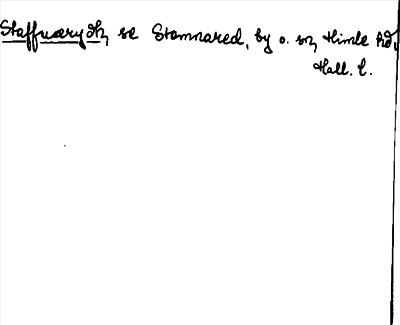 Staffuarydh, se Stamnared, by o. sn, Himle hd,
Hall. l.